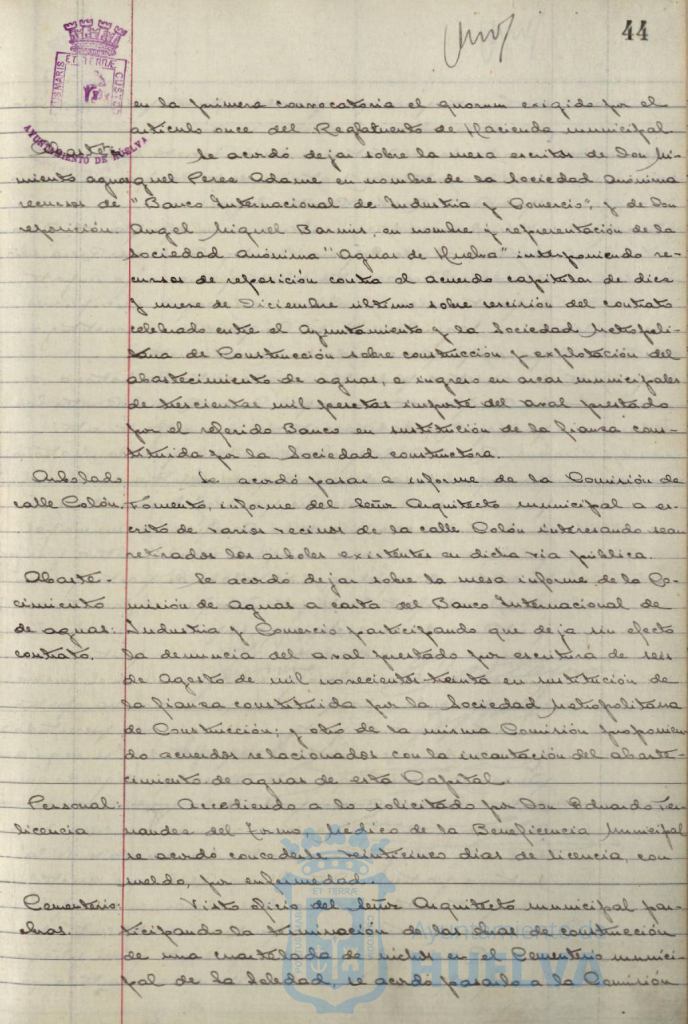 44
ET TERRÆ
AYUNTAMIENTO DE HUELVA
en la primera convocatoria el quorum exigido por el
artículo once del Reglamento de Hacienda municipal
Abaste-
Se acordó dejar sobre la mesa escritos de Don Mi-
miento aguas
guel Perez Adame en nombre de la Sociedad Anónima
recursos de
"Banco Internacional de Industria y Comercio"; y de Don
reposición.
Angel Miguel Barmus, en nombre y representación de la
Sociedad Anónima "Aguas de Huelva" interponiendo re-
cursos de reposición contra el acuerdo capitular de diez
y nueve de Diciembre último sobre rescisión del contrato
celebrado entre el Ayuntamiento y la Sociedad Metropoli-
tana de Construcción sobre construcción y explotación del
abastecimiento de aguas, e ingreso en arcas municipales
de trescientas mil pesetas importe del aval prestado
por el referido Banco en sustitución de la fianza cons-
tituida por la Sociedad constructora.
Arbolado
Se acordó pasar a informe de la Comisión de
calle Colón.
Fomento, informe del Señor Arquitecto municipal a es-
crito de varios vecinos de la calle Colón interesando sean
retirados los arboles existentes en dicha via pública.
Abaste-
Se acordó dejar sobre la mesa informe de la Co-
cimiento
misión de Aguas a carta del Banco Internacional de
de aguas:
Industria y Comercio participando que deja sin efecto
contrato.
la denuncia del aval prestado por escritura de seis
de Agosto de mil novecientos treinta en sustitución de
la fianza constituida por la Sociedad Metropolitana
de Construcción; y otro de la misma Comisión proponien-
do acuerdos relacionados con la incautación del abaste-
cimiento de aguas de esta Capital.
Personal:
Accediendo a lo solicitado por Don Eduardo Fer-
licencia
nandez del Formo, Médico de la Beneficencia Municipal
se acordó concederle veinticinco dias de licencia, con
sueldo, por enfermedad.
Cementerio:
Visto oficio del Señor Arquitecto municipal par-
obras.
ticipando la terminación de las obras de construcción
de una cuartelada de nichos en el Cementerio munici-
pal de la Soledad, se acordó pasarlo a la Comisión
Ayuntamiento de
HUELVA